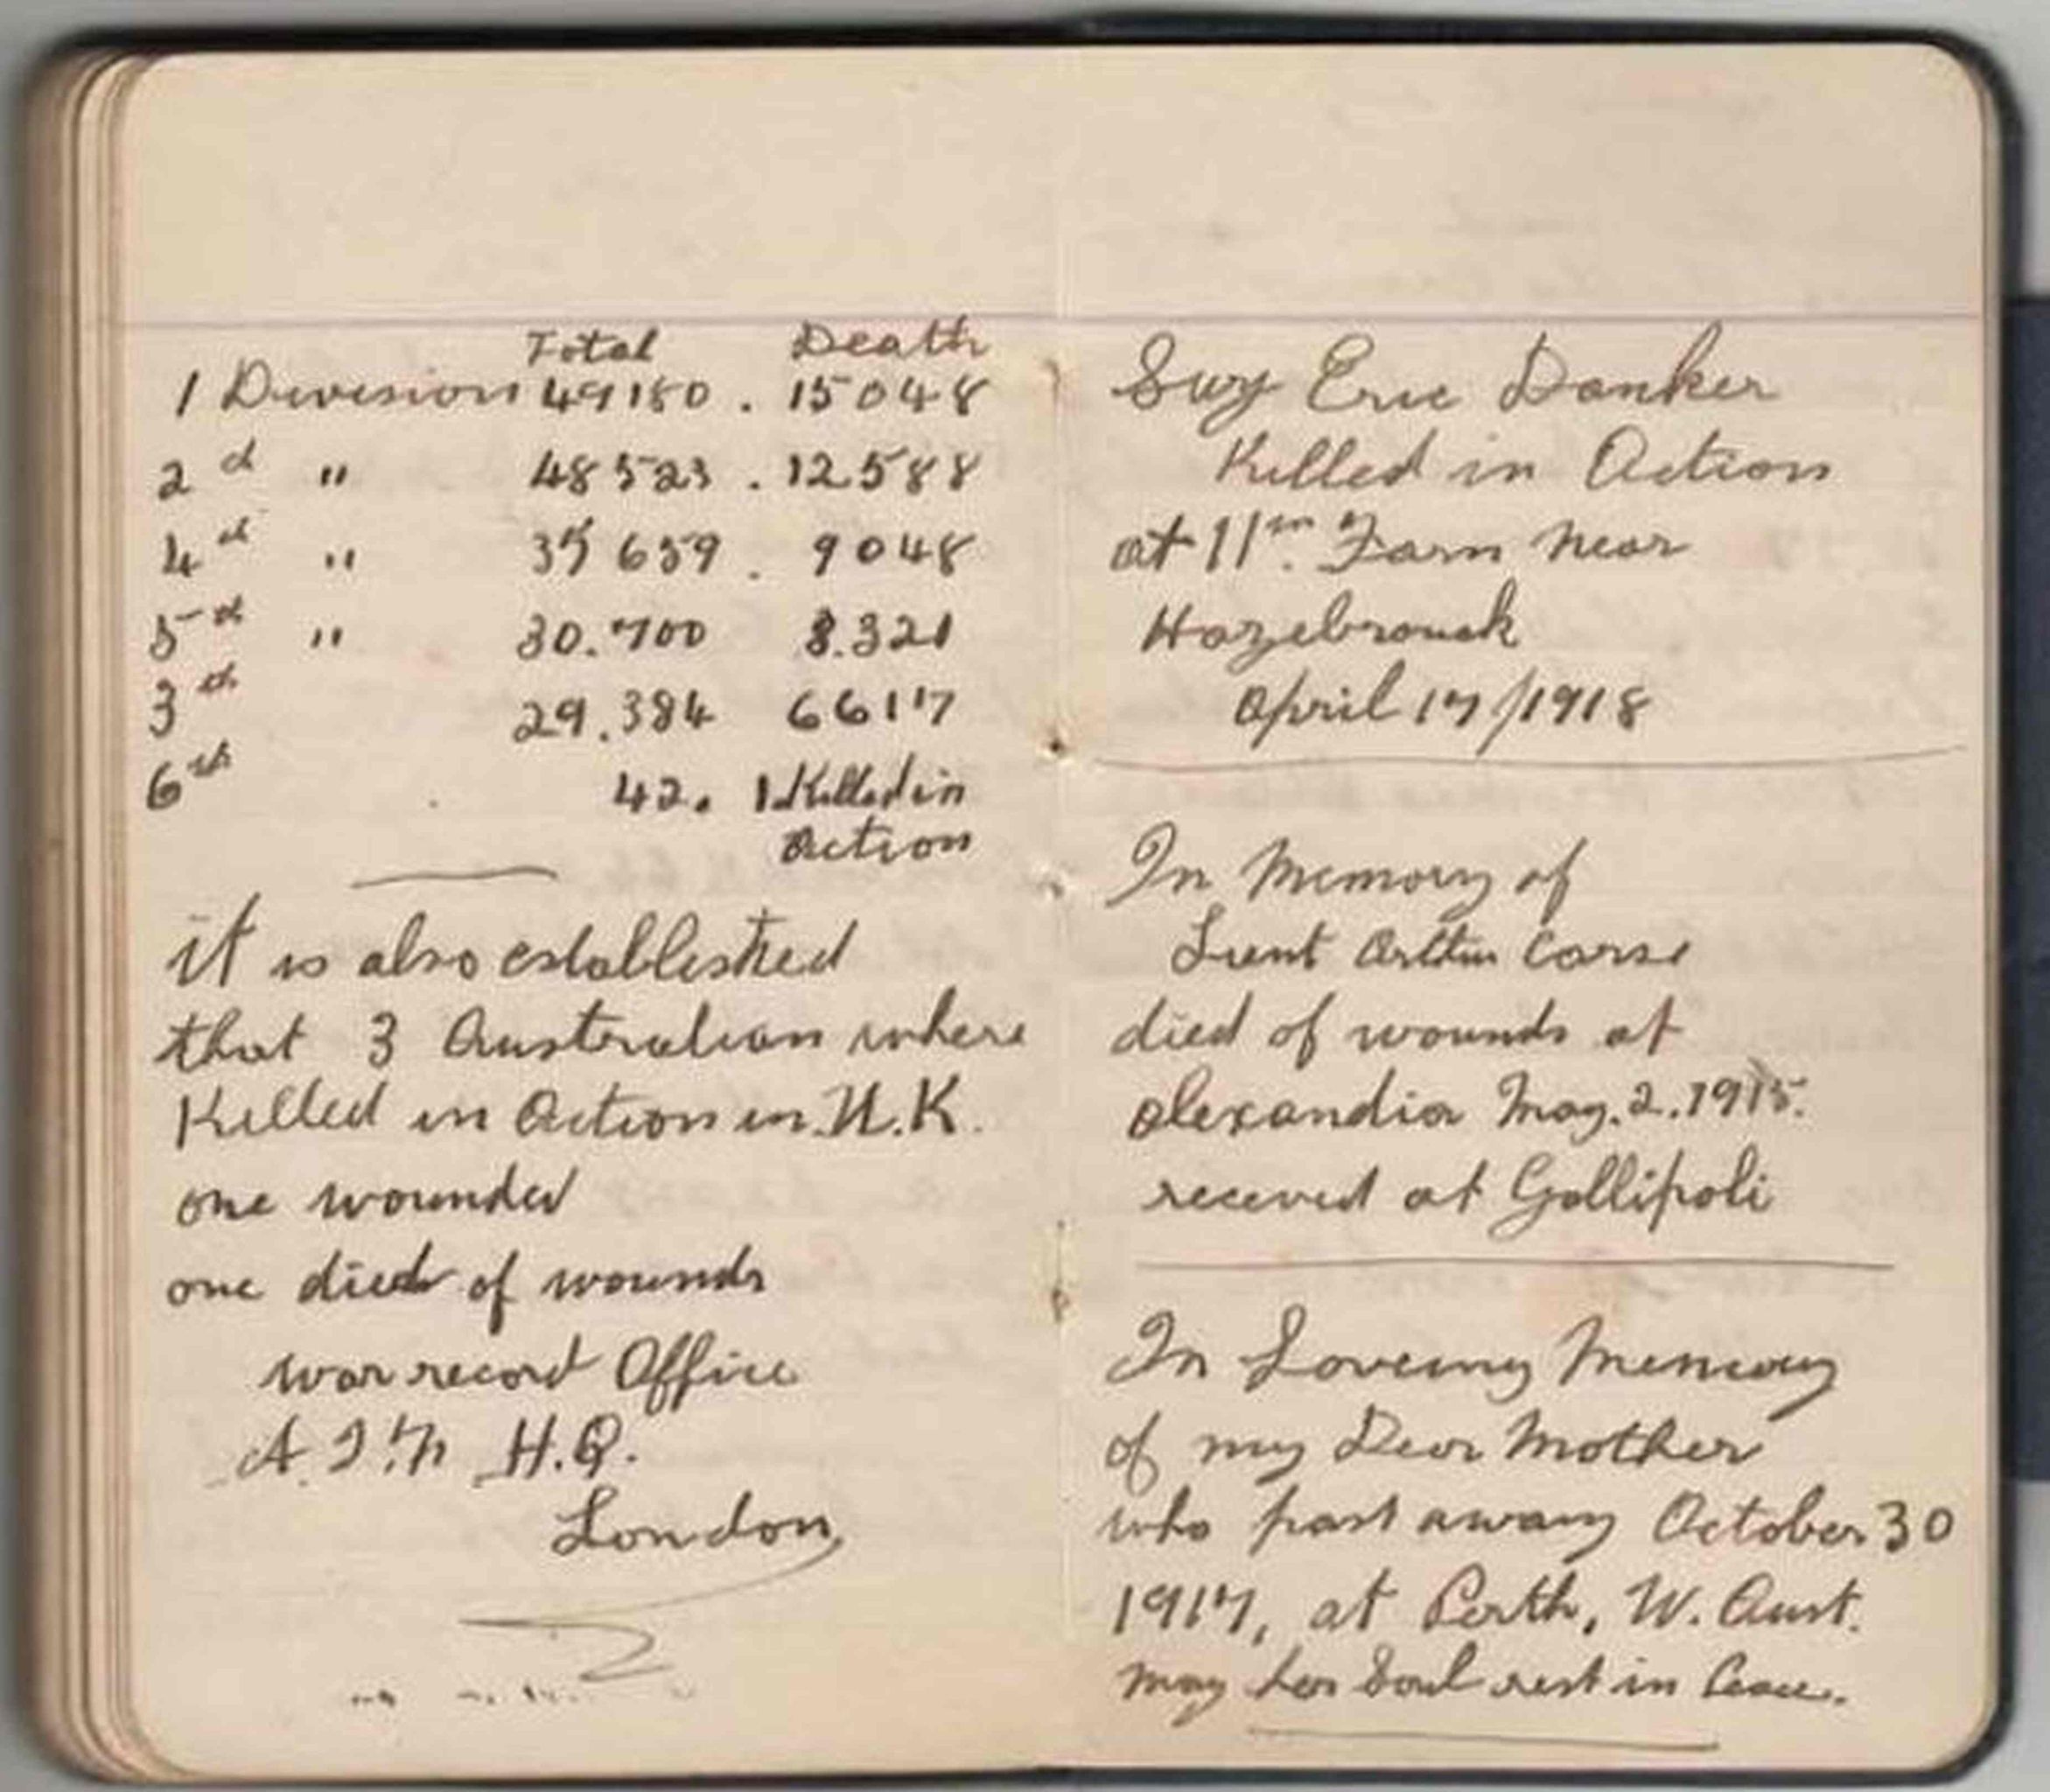 Total Death
1 Division 49180 . 15048
2 d " 48523 . 12588
4 th " 37659 . 9048
5 th " 30.700 8.321
3 th 29.384 6617
6 th 42. 1 Killed in
Action
it is also established
that 3 Australian where
Killed in Action in U.K.
one wounded
one died of wounds
war record Office
A.I.F. H.Q.
London
Eric Danker
Killed in Action
at 11 Farm near
Hazebrouck
April 17/1918
In Memory of
Lieut Arthur Corse
died of wounds at
Alexandia May. 2. 1915.
received at Gallipoli
In Loveing Memory
of my Dear Mother
who past away October 30
1917, at Perth, W. Aust.
may her Soul rest in Peace.